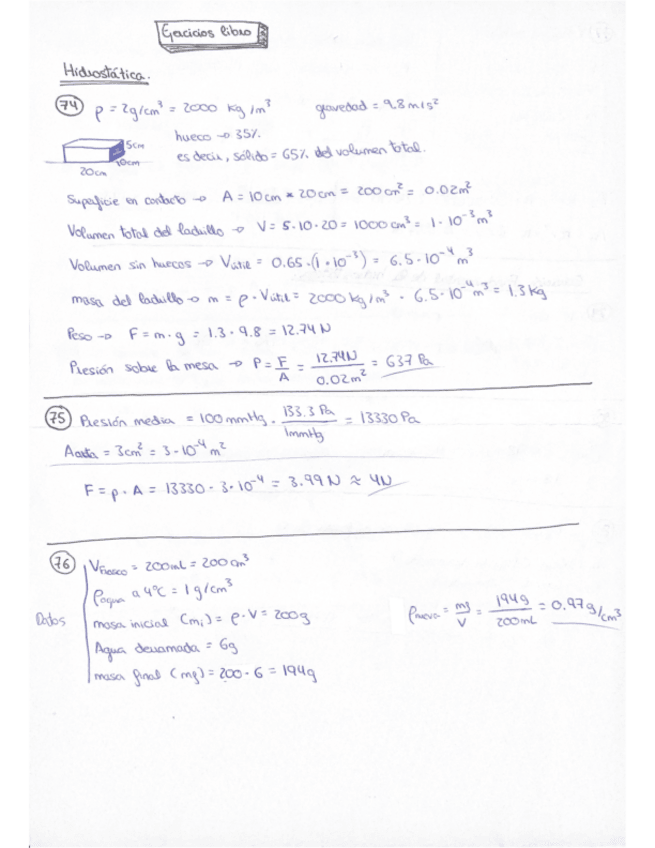 Ejercicios libro
Hidrostática.
74 ρ = 2g/cm³ = 2000 kg/m³ gravedad = 9.8 m/s²
hueco → 35%
es decir, sólido = 65% del volumen total.
5cm
10cm
20cm
Superficie en contacto → A = 10cm * 20cm = 200cm² = 0.02m²
Volumen total del ladrillo → V = 5·10·20 = 1000cm³ = 1·10⁻³m³
Volumen sin huecos → Vútil = 0.65·(1·10⁻³) = 6.5·10⁻⁴ m³
masa del ladrillo → m = ρ·Vútil = 2000kg/m³ · 6.5·10⁻⁴m³ = 1.3kg
Peso → F = m·g = 1.3·9.8 = 12.74N
Presión sobre la mesa → P = F/A = 12.74N/0.02m² = 637 Pa
75 Presión media = 100mmHg · 133.3 Pa/1mmHg = 13330 Pa
Aaorta = 3cm² = 3·10⁻⁴m²
F = p·A = 13330·3·10⁻⁴ = 3.99N ≈ 4N
76 Vfrasco = 200mL = 200cm³
ρagua a 4ºC = 1g/cm³
Datos masa inicial (mi) = ρ·V = 200g ρnueva = mf/V = 194g/200mL = 0.97g/cm³
Agua derramada = 6g
masa final (mf) = 200-6 = 194g